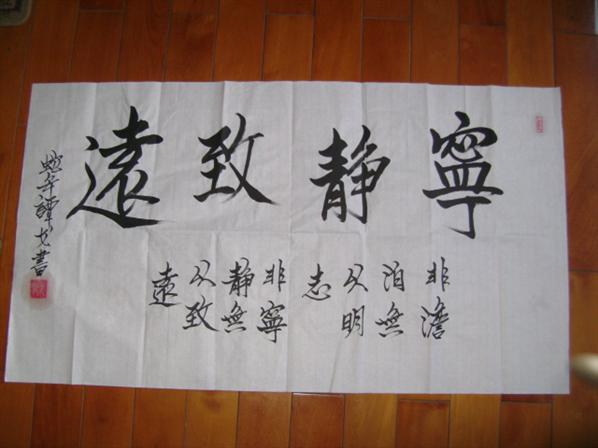 寧靜致遠
非澹
泊無
以明
志
非寧
靜無
以致
遠
蛇年譚戈書